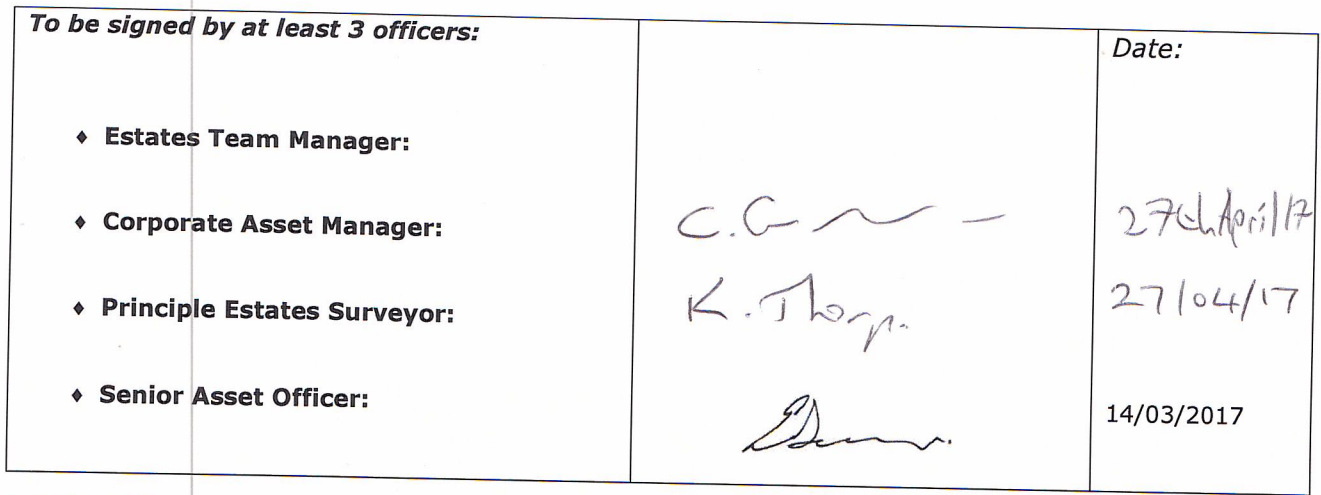 To be signed by at least 3 officers:
Date:
♦ Estates Team Manager:
♦ Corporate Asset Manager: C. 27th April/17
♦ Principle Estates Surveyor: K. Thorp. 27/04/17
♦ Senior Asset Officer: 14/03/2017